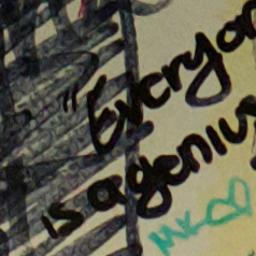 "Everyon
is a genius